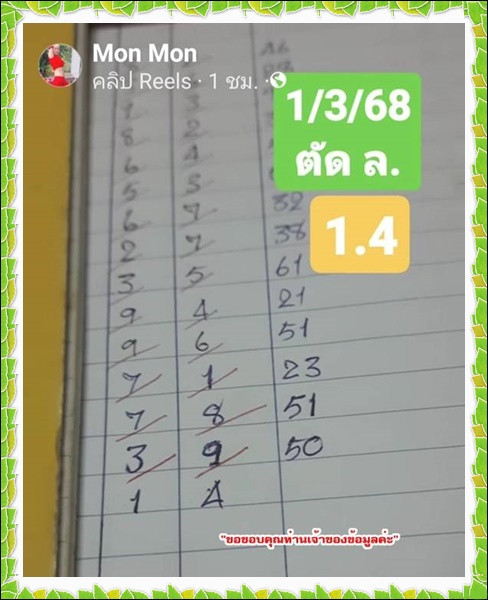 Mon Mon
คลิป Reels · 1 ชม. ·
1/3/68
ตัด ล.
1.4
16
1 3
8 2
6 4
5 5
6 7 32
2 7 38
3 5 61
9 4 21
9 6 51
7 1 23
7 8 51
3 9 50
1 4
"ขอขอบคุณท่านเจ้าของข้อมูลค่ะ"